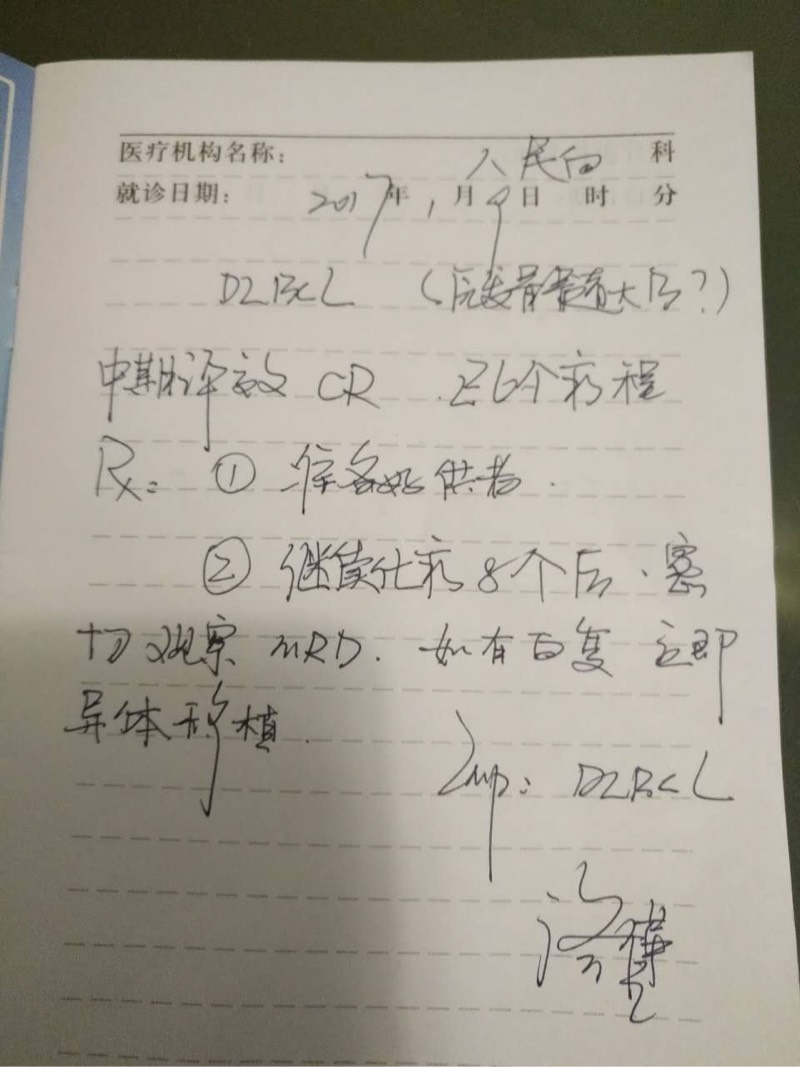 医疗机构名称： 人民 科
就诊日期： 2017年1月9日 时 分
DLBCL （原发骨髓 ？）
中期评效 CR . 已6个疗程
Rx: ① 准备好供者.
② 继续化疗8个后、密
切观察MRD. 如有 复 立即
异体移植.
Imp: DLBCL